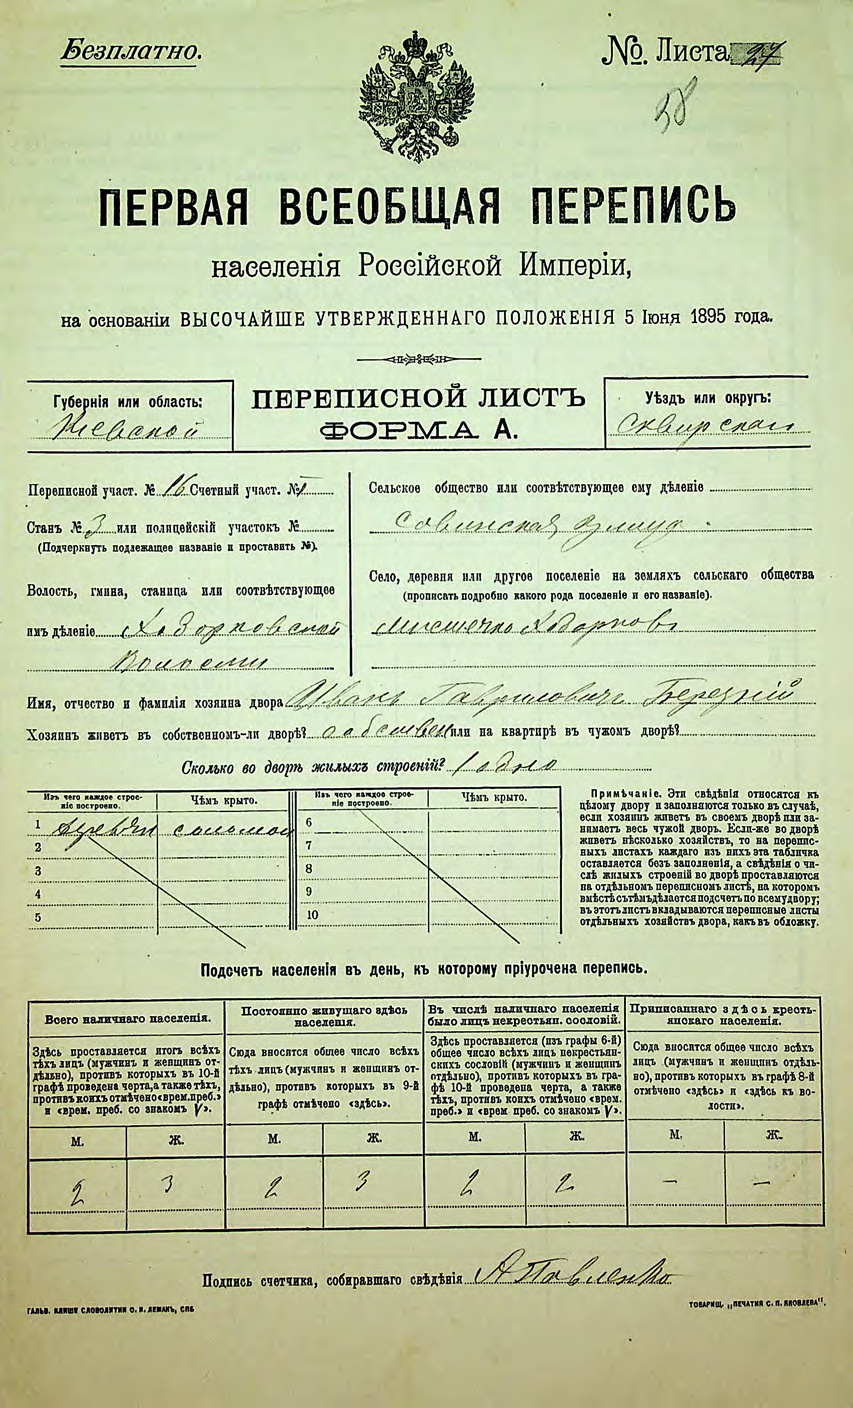 Безплатно.
№. Листа 27
58
ПЕРВАЯ ВСЕОБЩАЯ ПЕРЕПИСЬ
населенія Россійской Имперіи,
на основаніи ВЫСОЧАЙШЕ УТВЕРЖДЕННАГО ПОЛОЖЕНІЯ 5 Іюня 1895 года.
Губернія или область:
Кіевской
ПЕРЕПИСНОЙ ЛИСТЪ
ФОРМА А.
Уѣздъ или округъ:
Сквирскаго
Переписной участ. № 16 Счетный участ. №
Станъ № 3 или полицейскій участокъ №
(Подчеркнуть подлежащее названіе и проставить №).
Волость, гмина, станица или соотвѣтствующее
имъ дѣленіе Ходорковской
Волости
Сельское общество или соотвѣтствующее ему дѣленіе
улица
Село, деревня или другое поселеніе на земляхъ сельскаго общества
(прописать подробно какого рода поселеніе и его названіе).
мистечко Ходорковъ
Имя, отчество и фамилія хозяина двора Иванъ Гавриловичъ Березкій
Хозяинъ живетъ въ собственномъ-ли дворѣ? собствен или на квартирѣ въ чужомъ дворѣ?
Сколько во дворѣ жилыхъ строеній? 1 одно
Изъ чего каждое строеніе построено.
Чѣмъ крыто.
Изъ чего каждое строеніе построено.
Чѣмъ крыто.
1 деревян соломой
2
3
4
5
6
7
8
9
10
Примѣчаніе. Эти свѣдѣнія относятся къ
цѣлому двору и заполняются только въ случаѣ,
если хозяинъ живетъ въ своемъ дворѣ или за-
нимаетъ весь чужой дворъ. Если-же во дворѣ
живетъ нѣсколько хозяйствъ, то на перепис-
ныхъ листахъ каждаго изъ нихъ эта табличка
оставляется безъ заполненія, а свѣдѣнія о чи-
слѣ жилыхъ строеній во дворѣ проставляются
на отдѣльномъ переписномъ листѣ, на которомъ
вмѣстѣ съ тѣмъ дѣлается подсчетъ по всему двору;
въ этотъ листъ вкладываются переписные листы
отдѣльныхъ хозяйствъ двора, какъ въ обложку.
Подсчетъ населенія въ день, къ которому пріурочена перепись.
Всего наличнаго населенія.
Здѣсь проставляется итогъ всѣхъ
тѣхъ лицъ (мужчинъ и женщинъ от-
дѣльно), противъ которыхъ въ 10-й
графѣ проведена черта, а также тѣхъ,
противъ коихъ отмѣчено «врем. преб.»
и «врем. преб. со знакомъ V».
М. Ж.
2 3
Постоянно живущаго здѣсь
населенія.
Сюда вносится общее число всѣхъ
тѣхъ лицъ (мужчинъ и женщинъ от-
дѣльно), противъ которыхъ въ 9-й
графѣ отмѣчено «здѣсь».
М. Ж.
2 3
Въ числѣ наличнаго населенія
было лицъ некрестьян. сословій.
Здѣсь проставляется (изъ графы 6-й)
общее число всѣхъ лицъ некрестьян-
скихъ сословій (мужчинъ и женщинъ
отдѣльно), противъ которыхъ въ гра-
фѣ 10-й проведена черта, а также
тѣхъ, противъ коихъ отмѣчено «врем.
преб.» и «врем. преб. со знакомъ V».
М. Ж.
2 2
Приписаннаго здѣсь кресть-
янскаго населенія.
Сюда вносится общее число всѣхъ
лицъ (мужчинъ и женщинъ отдѣль-
но), противъ которыхъ въ графѣ 8-й
отмѣчено «здѣсь» и «здѣсь къ во-
лости».
М. Ж.
— —
Подпись счетчика, собиравшаго свѣдѣнія А Павленко
ГАЛЬВ. КЛИШЕ СЛОВОЛИТНИ О. И. ЛЕМАНЪ, СПБ
ТОВАРИЩ. „ПЕЧАТНЯ С. П. ЯКОВЛЕВА“.